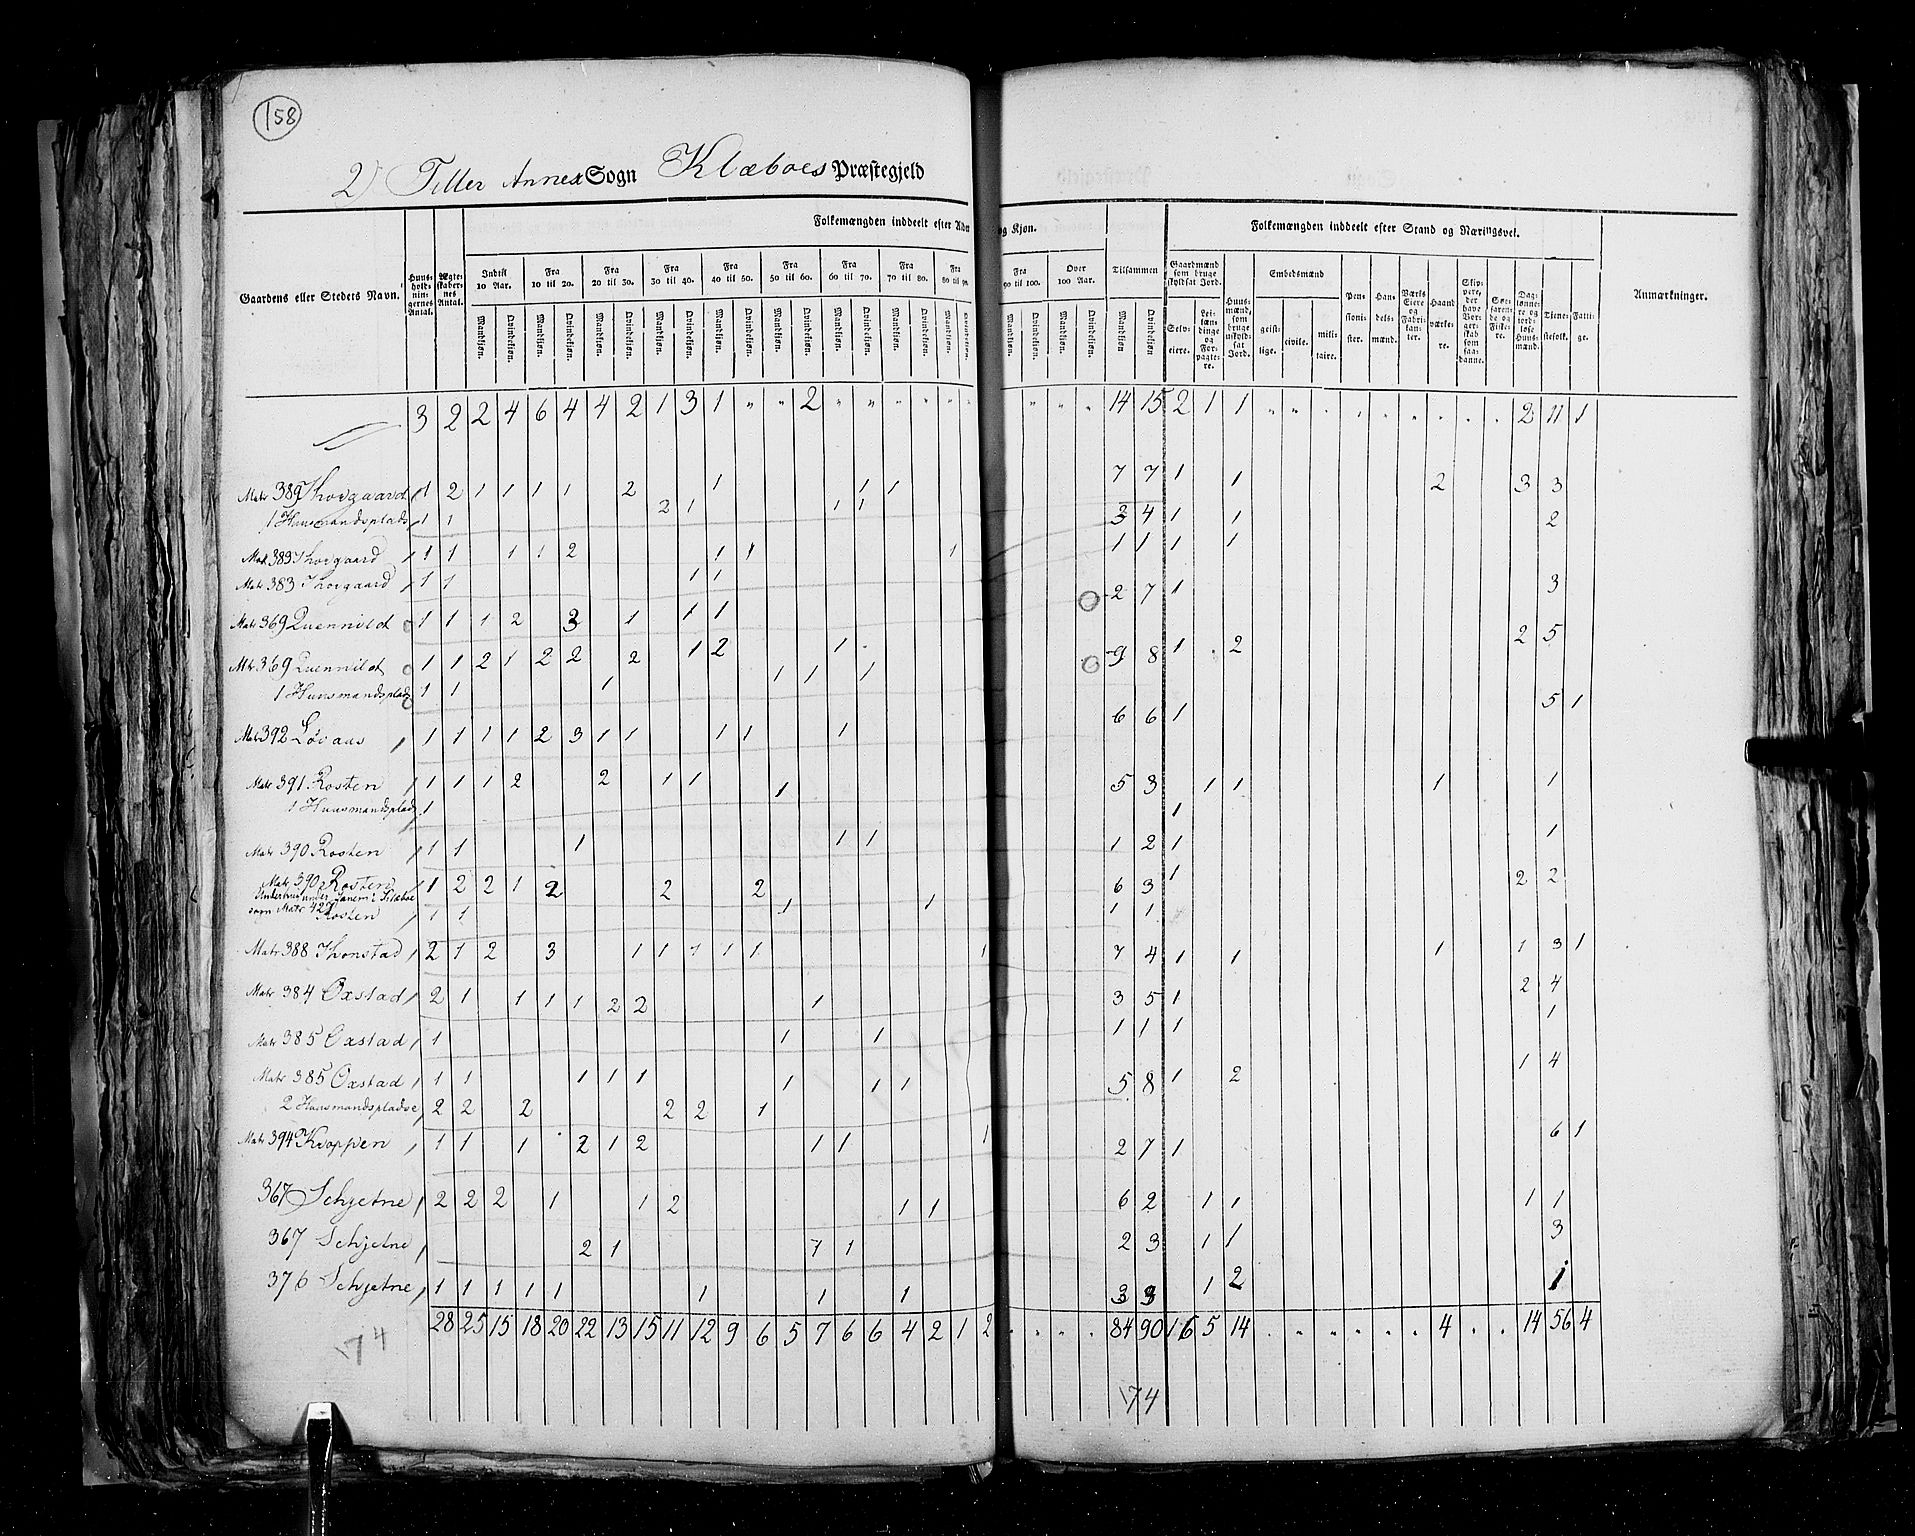 158
2) Tiller Annex Sogn Klæboes Præstegjeld
Gaardens eller Stedets Navn.
Huusholdningernes Antal.
Ægteskabernes Antal.
Folkemængden inddeelt efter Alder og Kjøn.
Indtil 10 Aar. Fra 10 til 20. Fra 20 til 30. Fra 30 til 40. Fra 40 til 50. Fra 50 til 60. Fra 60 til 70. Fra 70 til 80. Fra 80 til 90. Fra 90 til 100. Over 100 Aar. Tilsammen
Mandkjøn. Qvindekjøn. Mandkjøn. Qvindekjøn. Mandkjøn. Qvindekjøn. Mandkjøn. Qvindekjøn. Mandkjøn. Qvindekjøn. Mandkjøn. Qvindekjøn. Mandkjøn. Qvindekjøn. Mandkjøn. Qvindekjøn. Mandkjøn. Qvindekjøn. Mandkjøn. Qvindekjøn. Mandkjøn. Qvindekjøn. Mandkjøn Qvindekjøn.
Folkemængden inddeelt efter Stand og Næringsvei.
Gaardmænd som bruge skyldsat Jord.
Selveiere.
Leilændinge og Forpagtere.
Huusmænd, som bruge uskyldsat Jord.
Embedsmænd
geistlige. civile. militaire.
Pensionister.
Handelsmænd.
Værks Eiere og Fabrikanter.
Haandværkere.
Skippere, der have Borgerskab som saadanne.
Søefarende og Fiskere.
Daglønnere og jordløse Huusmænd.
Tienestefolk.
Fattige.
Anmærkninger.
3 2 2 4 6 4 4 2 1 3 1 " " 2 " " " " " " " " " 14 15 2 1 1 " " " " " " " " " " 2 11 1
Matr 389 Thorgaard 1 2 1 1 1 1 2 1 1 1 7 7 1 1 2 3 3
1 Huusmandsplads 1 1 2 1 1 1
Matr 383 Thorgaard 1 1 1 1 2 1 1 1 3 4 1 1 2
Matr 383 Thorgaard 1 1 1 1 1 1 1 1
Matr 369 Quennild 1 1 1 2 3 1 1 1 2 7 1 3
Matr 369 Quennild 1 1 2 1 2 2 2 1 2 1 9 8 1 2 2 5
1 Huusmandsplads 1 1 1 1 1 1
Matr 392 Løvaas 1 1 1 1 2 3 1 1 1 1 1 6 6 1 5 1
Matr 391 Rosten 1 1 1 2 2 1 1 5 3 1 1 1 1
1 Huusmandsplads 1 1 1
Matr 390 Rosten 1 1 1 1 1 1 2 1 1
Matr 390 Rosten 1 2 2 1 2 2 2 6 3 1 2 2
som Matr 429 Rosten 1 1 1 1 1 1
Matr 388 Thonstad 2 1 2 3 1 1 1 1 1 1 7 4 1 1 1 1 3 1
Matr 384 Oxstad 2 1 1 1 1 2 2 1 3 5 1 2 4
Matr 385 Oxstad 1 1 1 1 1 1 1
Matr 385 Oxstad 1 1 1 1 1 1 1 1 5 8 1 2 1 4
2 Huusmandspladse 2 2 2 2 2 1
Matr 394 Kroppen 1 1 1 2 1 2 1 1 1 2 7 1 6 1
367 Schjetne 2 2 2 1 1 2 1 1 6 2 1 1 1 1
367 Schjetne 2 1 1 1 2 3 1 1 3
376 Schjetne 1 1 1 1 1 1 1 1 3 3 1 2 1
28 25 15 18 20 22 13 15 11 12 9 6 5 7 6 6 4 2 1 2 " " " " 84 90 16 5 14 " " " " " " 4 " " 14 56 4
174
174